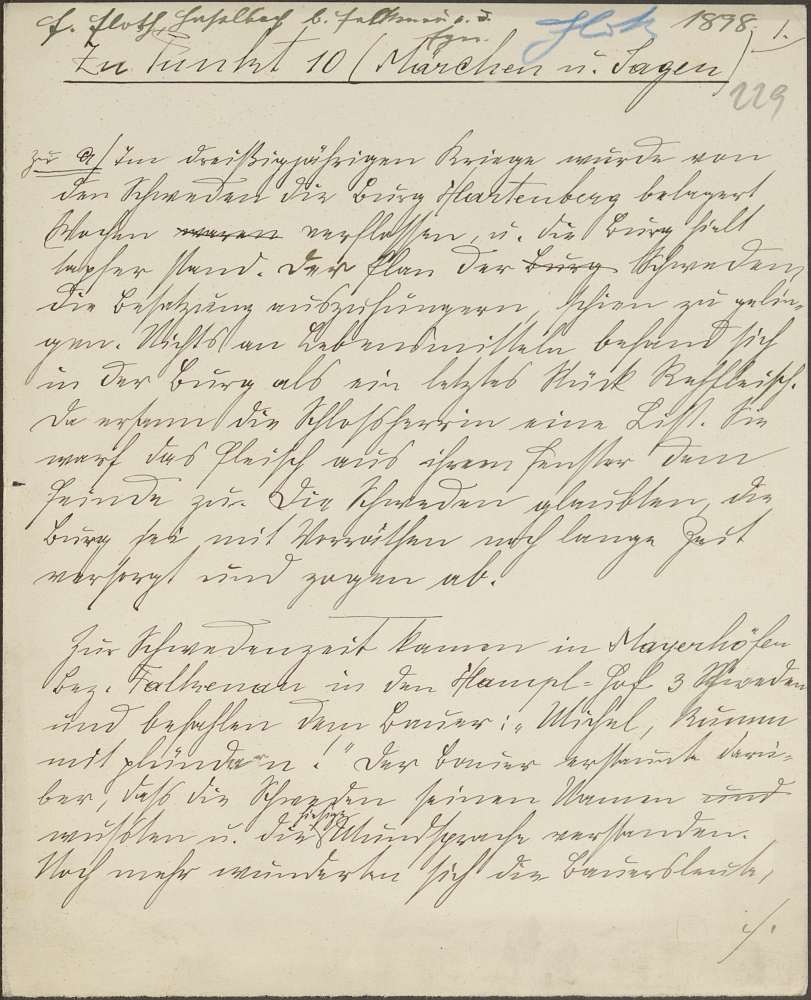 F. Floth, Haselbach b. Falkenau a. d. Eger. Floth 1898. 1.
Zu Punkt 10 (Märchen u. Sagen)
119
zu a/ Im dreißigjährigen Kriege wurde von
den Schweden die Burg Hartenberg belagert
Wochen waren verflossen, u. die Burg hielt
tapfer stand. Der Plan der Burg Schweden,
die Besatzung auszuhungern, schien zu gelin-
gen. Nichts an Lebensmitteln befand sich
in der Burg als ein letztes Stück Rehfleisch.
Da ersann die Schlossherrin eine List. Sie
warf das Fleisch aus ihrem Fenster dem
Feinde zu. Die Schweden glaubten, die
Burg sei mit Vorräthen noch lange Zeit
versorgt und zogen ab.
Zur Schwedenzeit kamen in Mayerhöfen
Bez. Falkenau in den Hampl-Hof 3 Schweden
und befahlen dem Bauer: „Michel, kumm
mit plündern!" Der Bauer erstaunte darü-
ber, dass die Schweden seinen Namen und
wussten u. die hiesige Mundsprache verstanden.
Noch mehr wunderten sich die Bauersleute,
./.